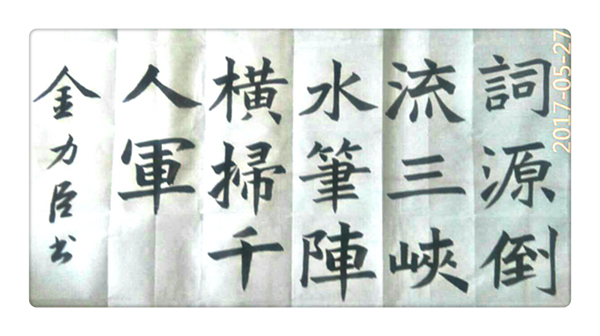 詞源倒
流三峽
水筆陣
橫掃千
人軍
金力臣书
2017-05-27